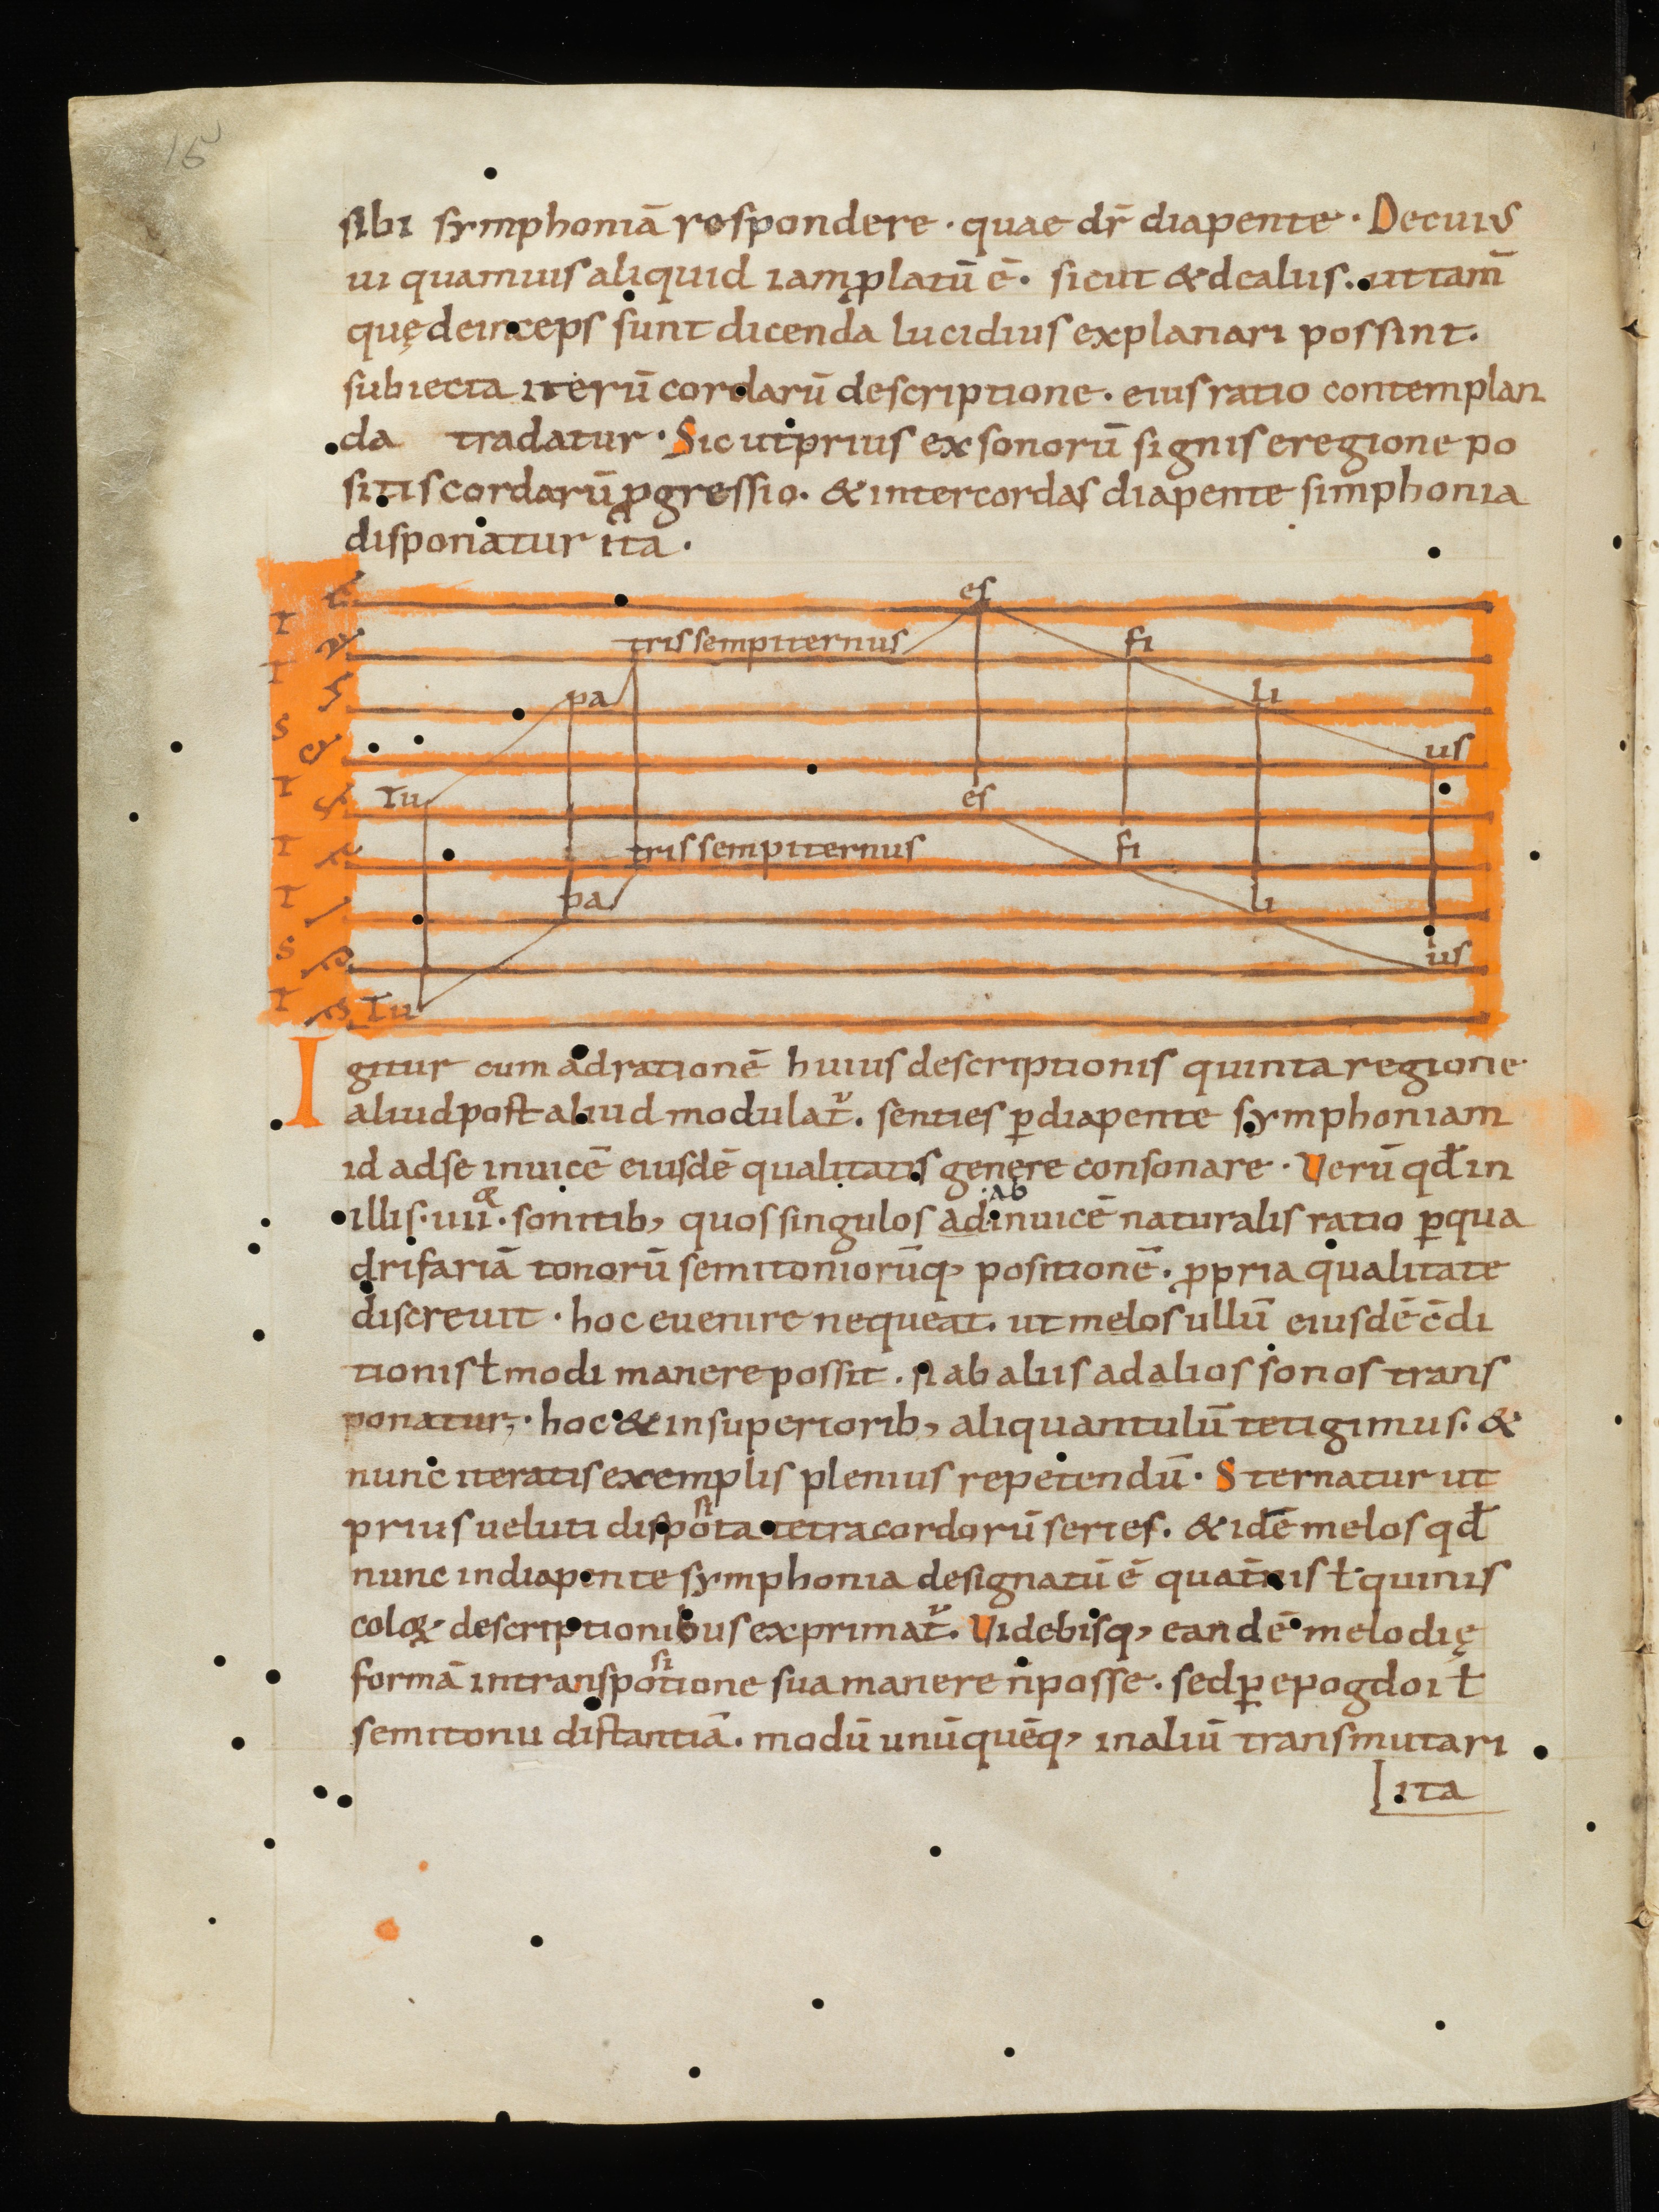 15
sibi symphoniā respondere · quae dr̄ diapente · Decuis
ui quamuis aliquid iam platū ē · sicut & dealiis. uttam̄
quę deinceps sunt dicenda lucidius explanari possint.
subiecta iterū cordarū descriptione · eius ratio contemplan
da tradatur · Sicut prius ex sonorū signis eregione po
sitis cordarū ꝓgressio. & inter cordas diapente simphonia
disponatur ita ·
es
tris sempiternus fi
pa li
us
Tu es
tris sempiternus fi
pa li
us
Tu
T
T
S
T
T
T
S
T
Igitur cum ad rationē huius descriptionis quinta regione
aliud post aliud modulat᷑. senties ꝑ diapente symphoniam
id ad se inuicē eiusdē qualitatis genere consonare · Verū qđ in
illis · iiii · sonitib; quos singulos ad ab inuicē naturalis ratio ꝑ qua
drifariā tonorū semitoniorūq; positionē. ꝓpria qualitate
discreuit · hoc euenire nequeat. ut melos ullū eiusdē c̄di
tionis ł modi manere possit. si ab aliis ad alios sonos trans
ponatur; · hoc & in superiorib; aliquantulū tetigimus. &
nunc iteratis exemplis plenius repetendū · Sternatur ut
prius ueluti disposita tetracordorū series. & idē melos qđ
nunc in diapente symphonia designatū ē quat̄nis ł quinis
coloꝝ descriptionibus exprimat᷑. Videbisq; eandē melodię
formā in transpositione sua manere n̄ posse. sed ꝑ epogdoi ł
semitonii distantiā. modū unūquēq; in aliū transmutari
ita